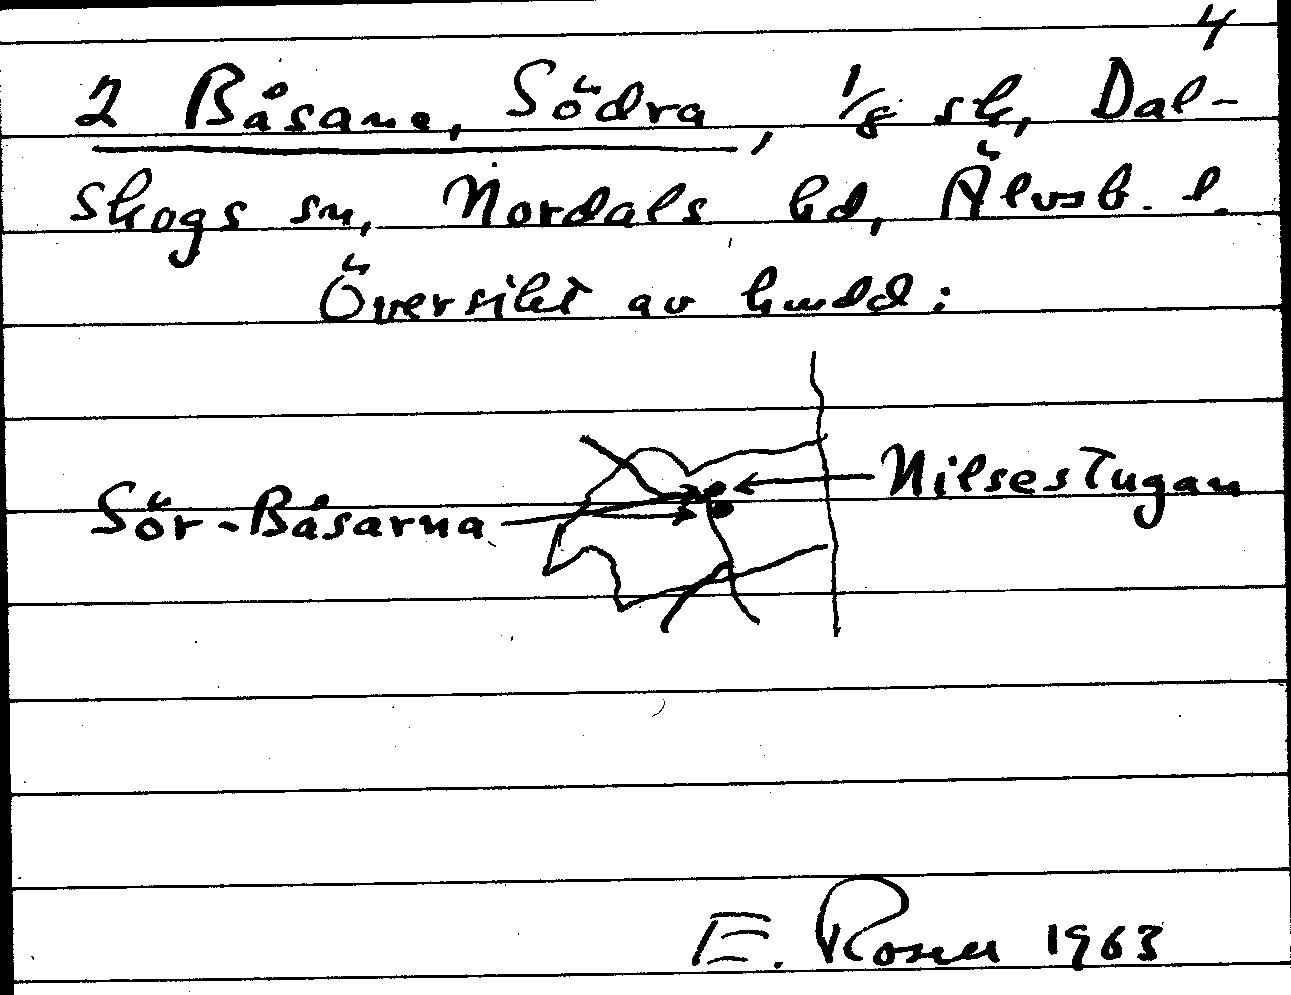 4
2 Båsane, Södra, 1/8 sk, Dal-
skogs sn, Nordals hd, Älvsb. l.
Översikt av hmdd:
Nilsestugan
Sör-Båsarna
E. Rosell 1963